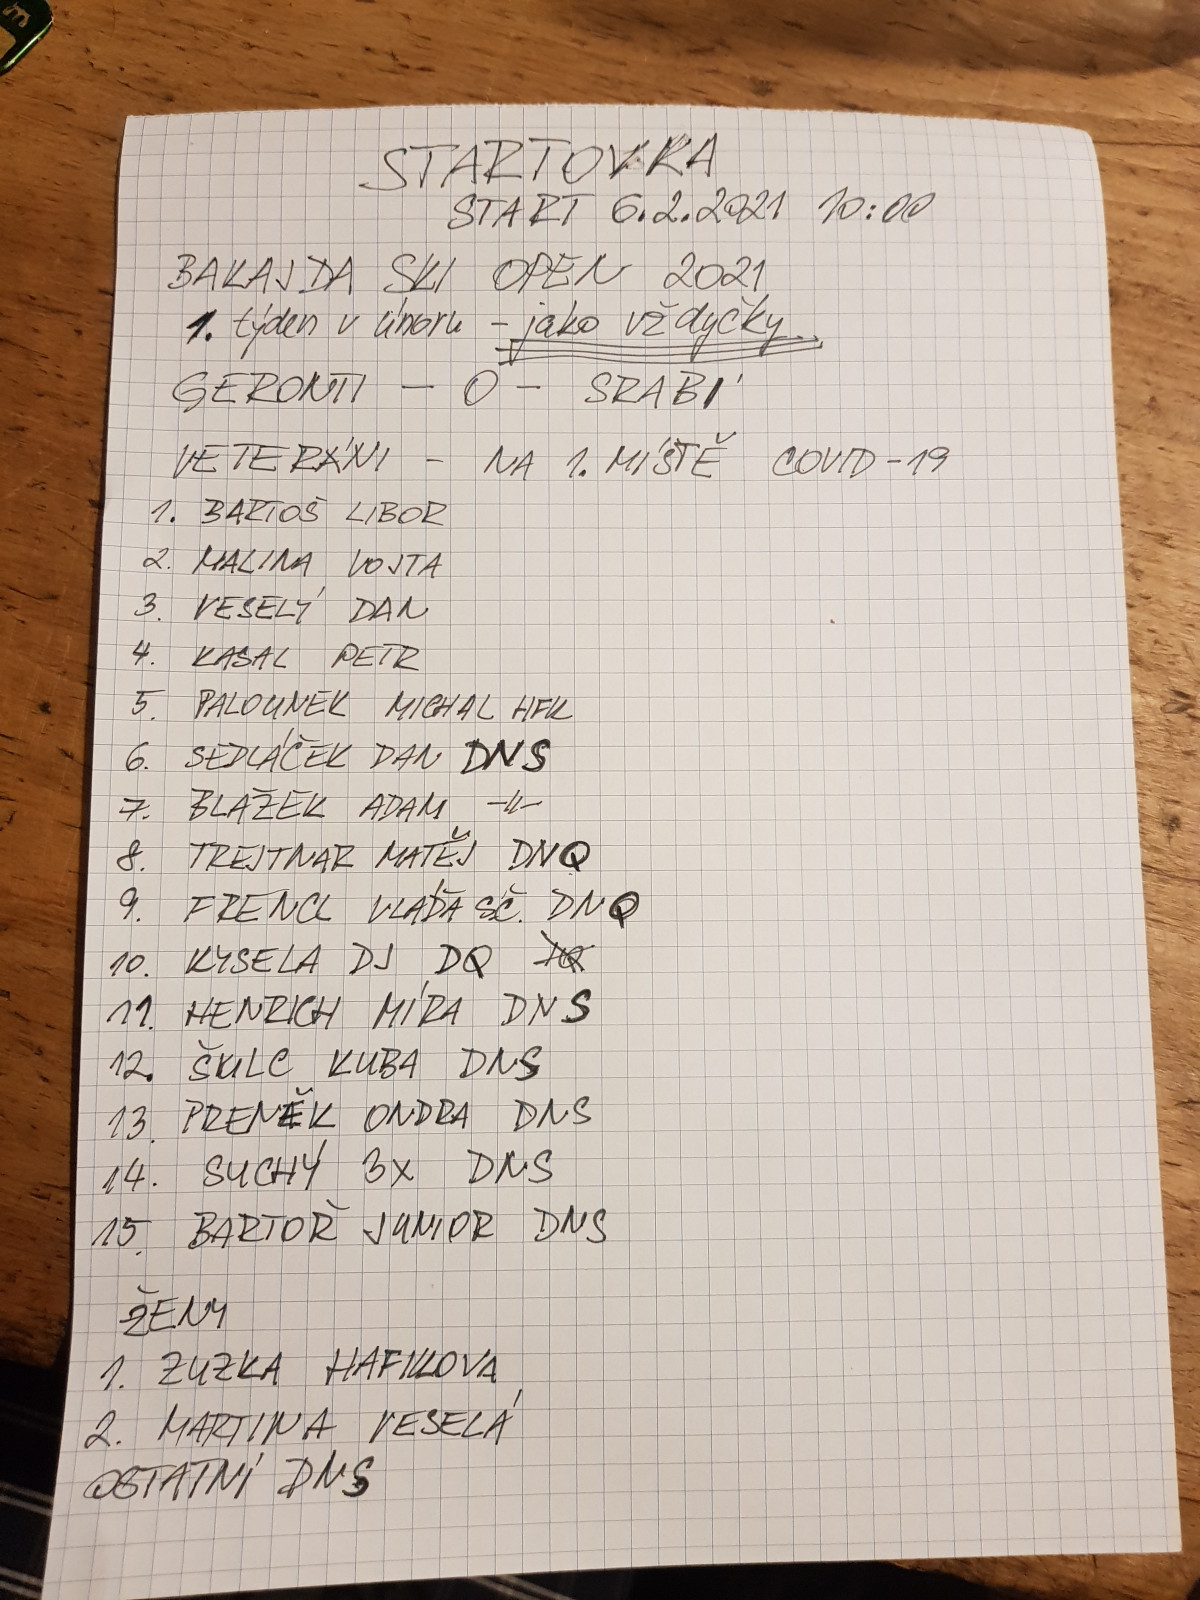 STARTOVKA
START 6.2.2021 10:00
BAKAJDA SKI OPEN 2021
1. týden v únoru - jako vždyčky
GERONTI - O - SRABI
VETERÁNI - NA 1. MÍSTĚ COVID-19
1. BARTOŠ LIBOR
2. MALINA VOJTA
3. VESELÝ DAN
4. KASAL PETR
5. PALOUNEK MICHAL HFK
6. SEDLÁČEK DAN DNS
7. BLAŽEK ADAM -||-
8. TREJTNAR MATĚJ DNQ
9. FRENCL VLAĎA SČ. DNQ
10. KYSELA DJ DQ
11. HENRICH MÍRA DNS
12. ŠULC KUBA DNS
13. PRENĚK ONDRA DNS
14. SUCHÝ 3X DNS
15. BARTOŘ JUNIOR DNS
ŽENY
1. ZUZKA HAFIKOVA
2. MARTINA VESELÁ
OSTATNÍ DNS